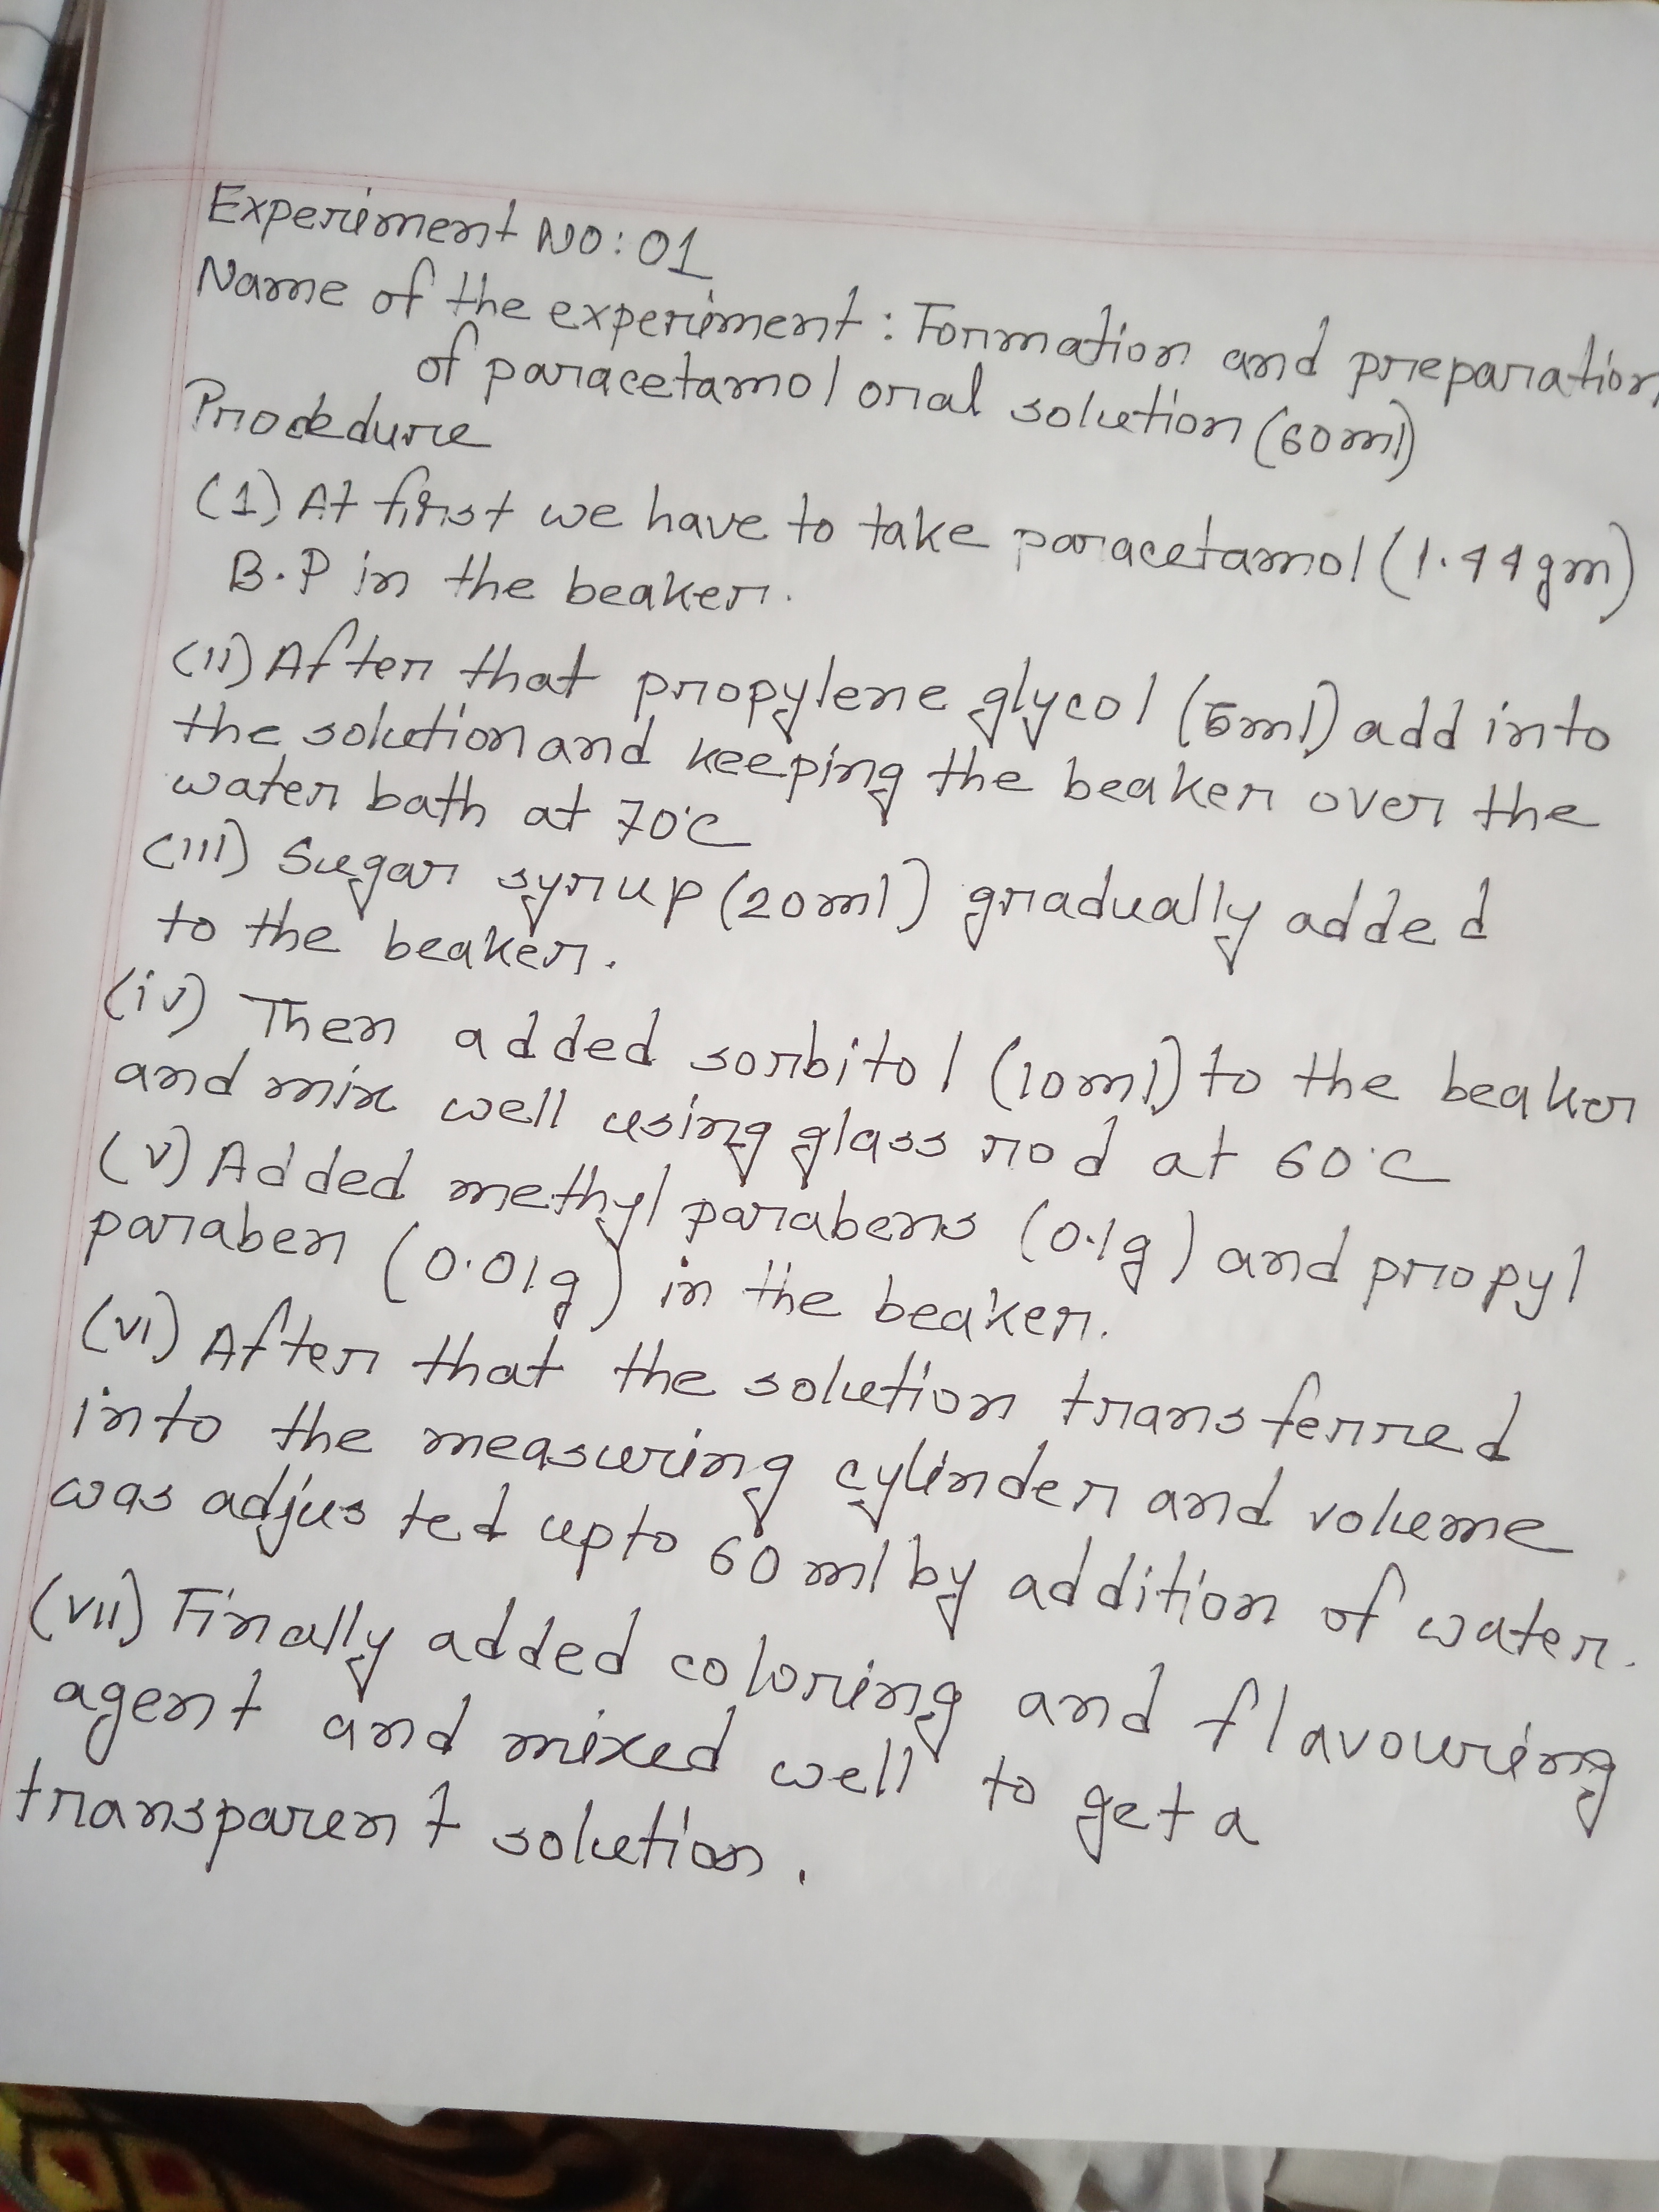 Experiment NO: 01
Name of the experiment: Formation and preparation
of paracetamol oral solution (60ml)
Procedure
(1) At first we have to take paracetamol (1.44gm)
B.P in the beaker.
(ii) After that propylene glycol (5ml) add into
the solution and keeping the beaker over the
water bath at 70°C
(iii) Sugar syrup (20ml) gradually added
to the beaker.
(iv) Then added sorbitol (10ml) to the beaker
and mix well using glass rod at 60°C
(v) Added methyl parabens (0.1g) and propyl
paraben (0.01g) in the beaker.
(vi) After that the solution transferred
into the measuring cylinder and volume
was adjusted upto 60 ml by addition of water.
(vii) Finally added coloring and flavouring
agent and mixed well to get a
transparent solution.